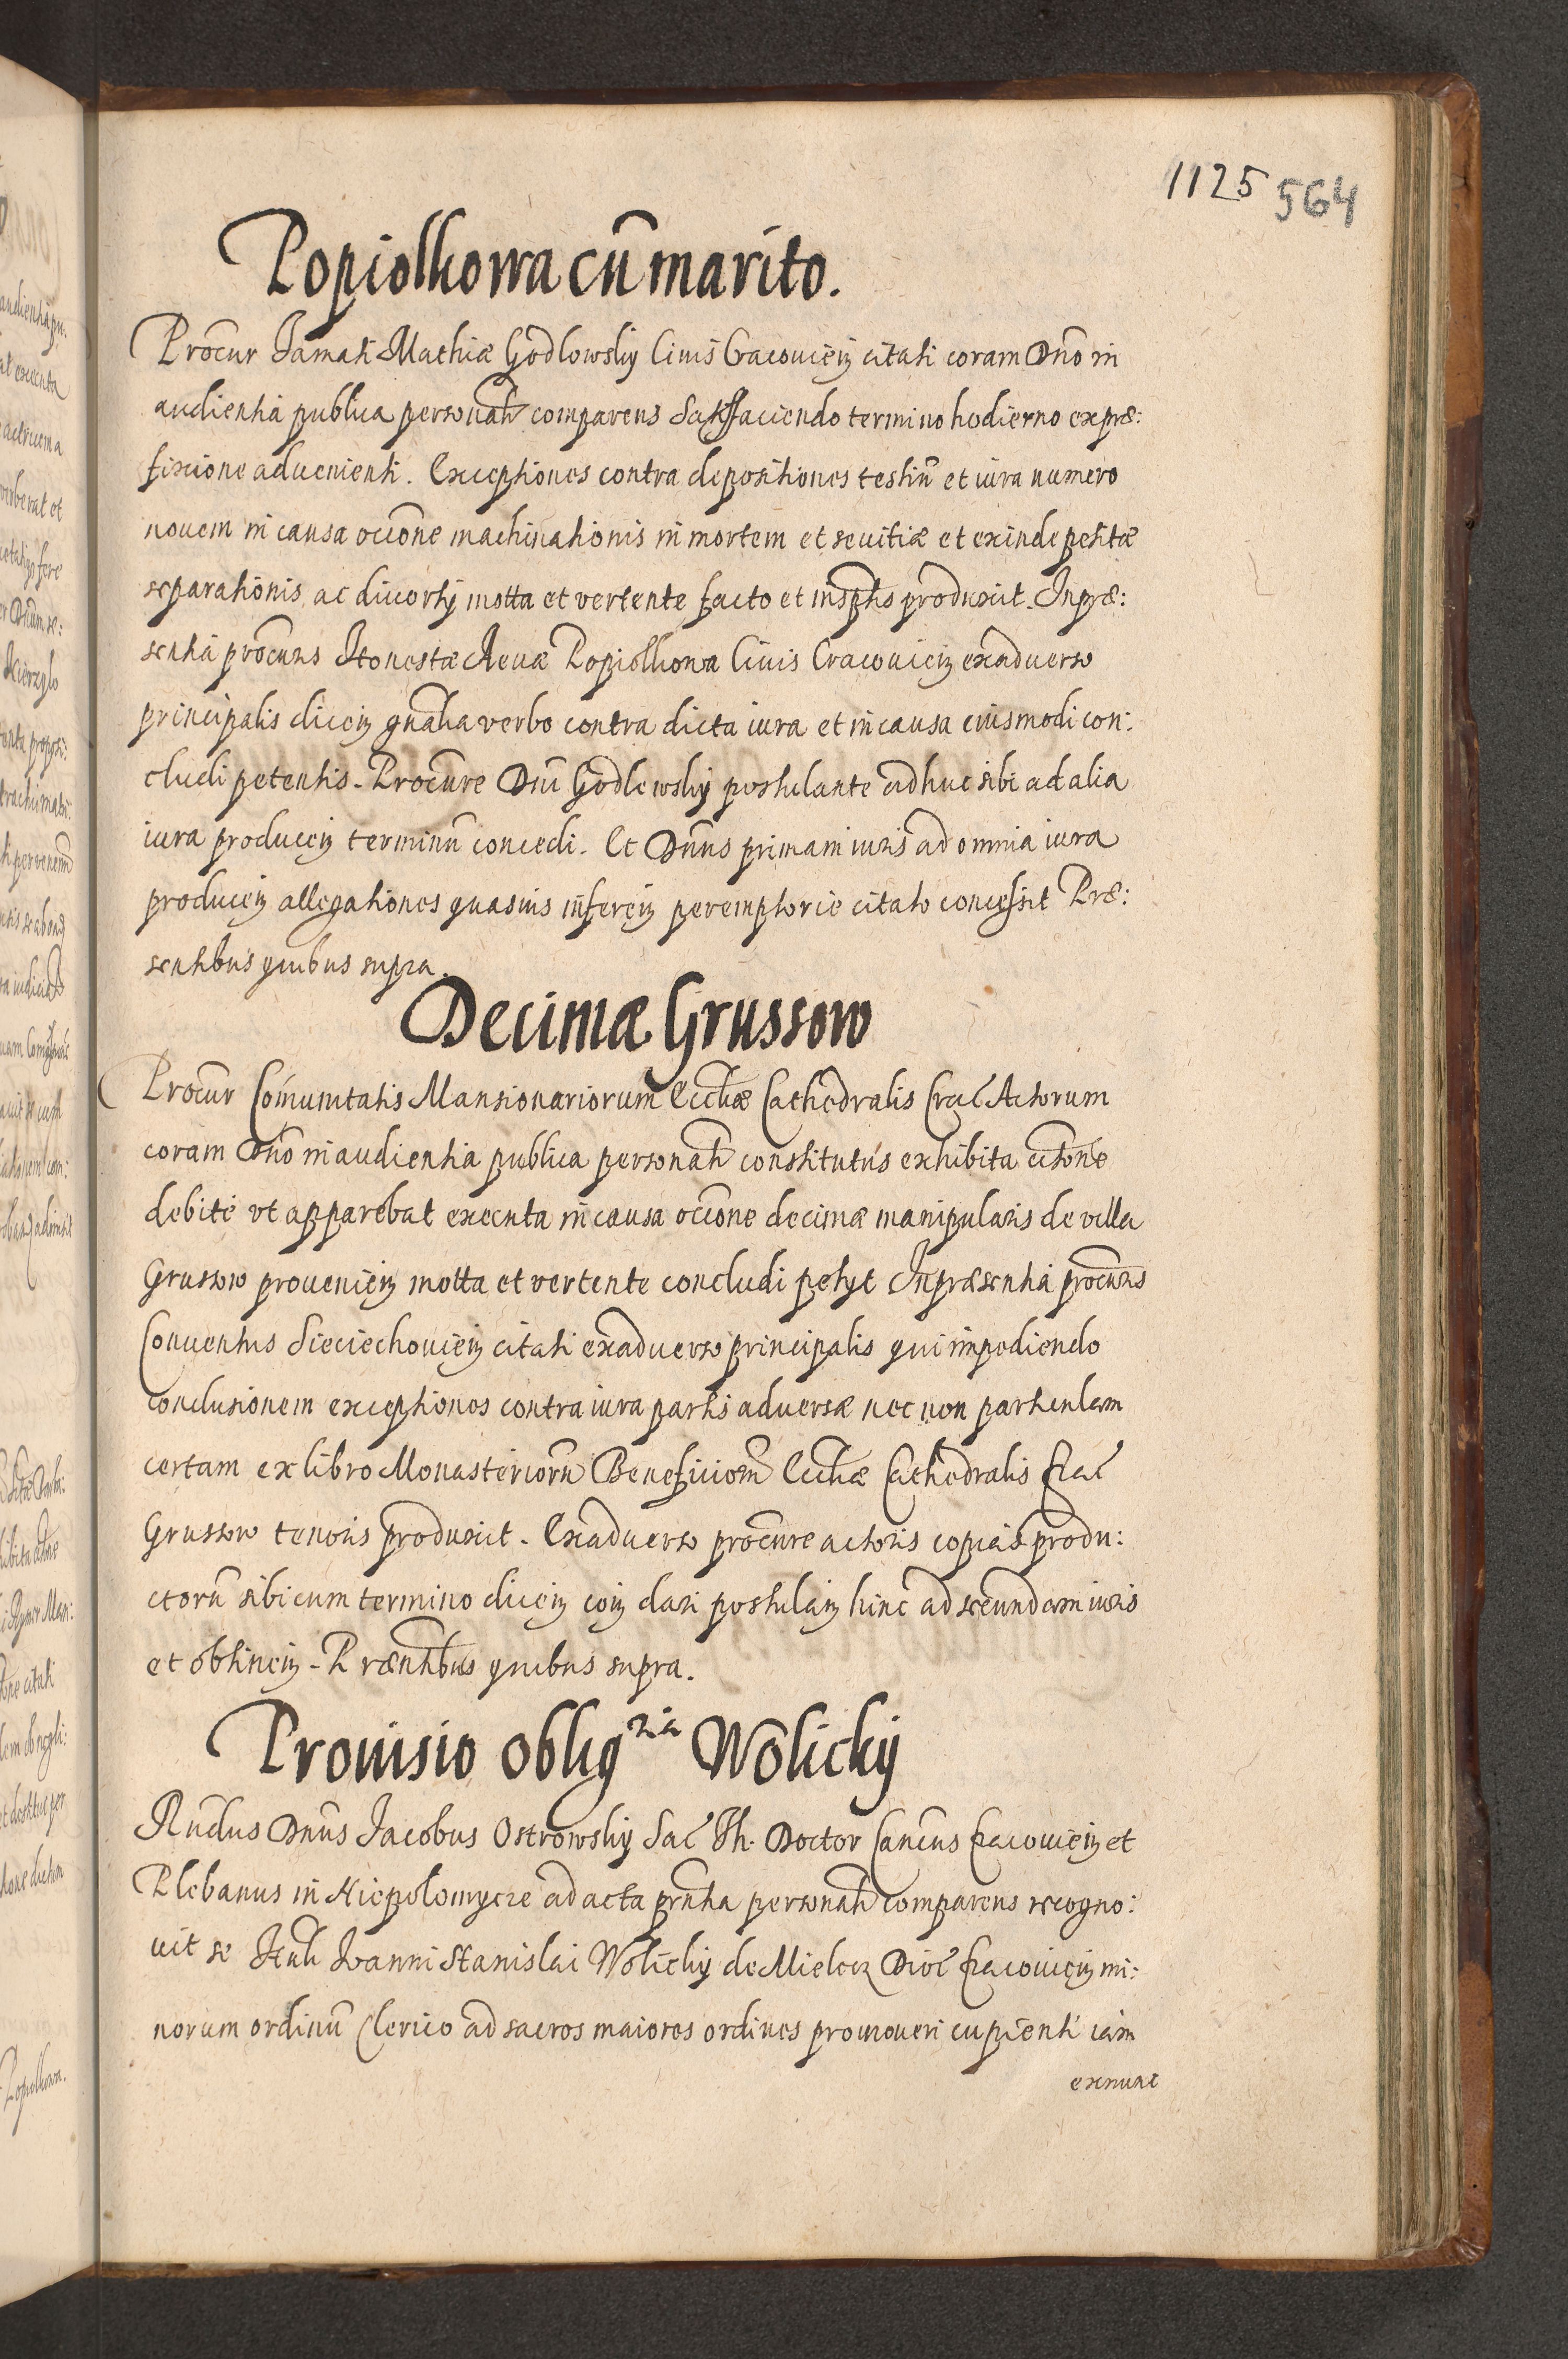 1125 564
Popiolkowa cū marito.
Procur Famati Mathiæ Godlowskÿ Ciuis Cracovień citati coram Dnō in
audientia publica personalr comparens Satisfaciendo termino hodierno ex præ:
fixione aduenienti. Exceptiones contra depositiones testiū et iura numero
nouem in causa occōne machinationis in mortem et seuitiæ et exinde petitæ
separationis ac diuortÿ motta et vertente facto et inscptis produxit. In præ:
sentia procuris Honestæ Aeuæ Popiolkowa Ciuis Cracouień exaduerso
principalis dicēn gnālia verbo contra dicta iura et in causa eiusmodi con:
cludi petentis. Procure Dni Godlewskÿ postulante adhuc sibi ad alia
iura producēn terminū concedi. Et Dnus primam iuris ad omnia iura
producēn allegationes quasuis inferēn peremptorie citato concessit Præ:
sentibus quibus supra.
Decimæ Grussow
Procur Com̄unitatis Mansionariorum Eccliæ Cathedralis Crac Actorum
coram Dnō in audientia publica personalr constitutus exhibita citōne
debite vt apparebat executa in causa occōne decimæ manipularis de villa
Grussow prouenień motta et vertente concludi petÿt In præsentia procuris
Conuentus Sieciechouień citati exaduerso principalis qui impediendo
conclusionem exceptiones contra iura partis aduersæ nec non particulam
certam ex libro Monasteriorū Beneficiorū Eccliæ Cathedralis Crac
Grussow tenoris produxit. Exaduerso procure actoris copias produ:
ctorū sibi cum termino dicēn coīn dari postulān hinc ad secundam iuris
et obtinēn. Præntibus quibus supra.
Prouisio oblig ria Wolickÿ
Rndus Dnus Jacobus Ostrowskÿ Sac Th. Doctor Cancus Cracouień et
Plebanus in Niepolomycze ad acta prntia personalr comparens recogno:
uit se Hnli Ioanni Stanislai Wolickÿ de Mielecz Dioc Cracouień mi:
norum ordinū Clerico ad sacros maiores ordines promoueri cupienti iam
exnunc